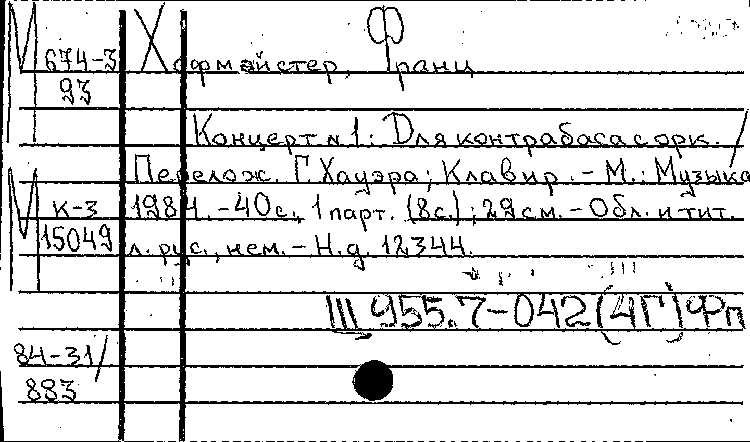 М 674-3 Хофмайстер, Франц
93
Концерт N 1: Для контрабаса с орк. /
Перелож. Г. Хауэра; Клавир. - М.: Музыка
М к-3 1984. - 40 с., 1 парт. (8с.); 29 см. - Обл. и тит.
15049 л. рус., нем. - Н.д. 12344.
III 955.7-042(4Г)Фп
84-31/
883